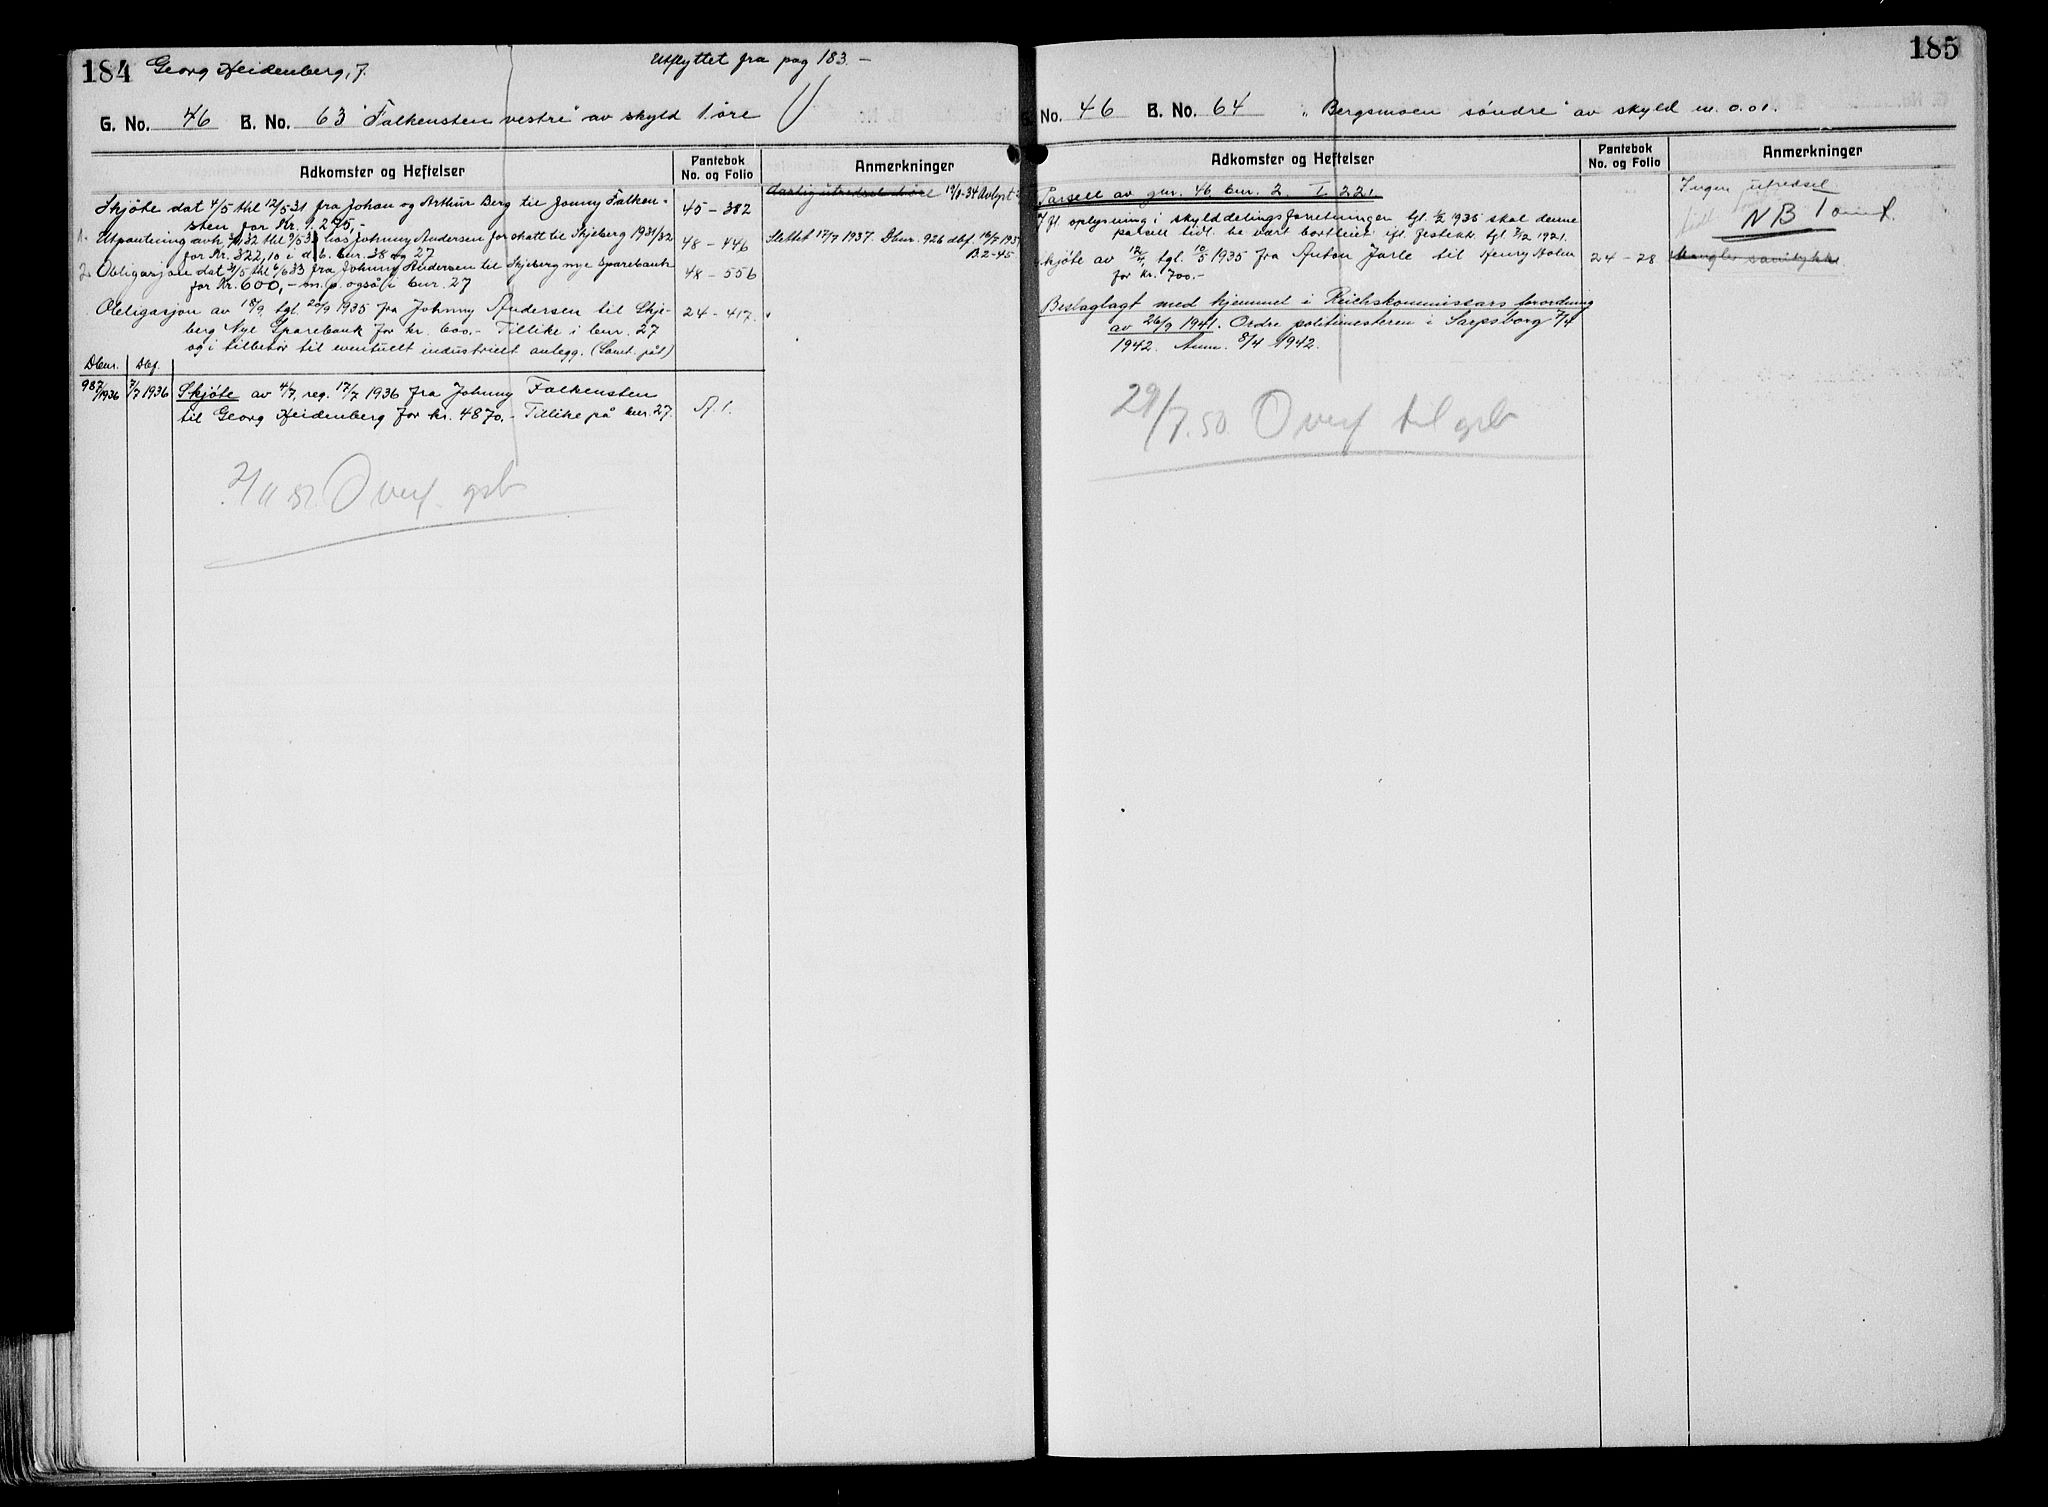 184 Georg Heidenberg, 7.
Utflyttet fra pag 183. -
G. No. 46 B. No. 63 "Falkensten vestre" av skyld 1 øre
Adkomster og Heftelser
Pantebok
No. og Folio
Anmerkninger
Skjøte dat 4/5 thl 12/5 31 fra Johan og Arthur Berg til Jonny Falken-
sten for Kr. 1.275,-
45-382
19/1-34 Avlyst
1. Utpantning avh 32 thl 9/5 3 hos Johnny Andersen for skatt til Skjeberg 1931/32
for Kr. 322,10 i d b. bnr. 38 og 27
48-446
Slettet 17/7 1937. Dbnr. 926 dbf. 16/7 1937
B.2-45
2. Obligasjon dat 31/5 thl 6/6 33 fra Johnny Andersen til Skjeberg nye Sparebank
for Kr. 600,- m. p. også i bnr. 27
48-556
Obligasjon av 18/9 tgl. 20/9 1935 fra Johnny Andersen til Skje-
berg Nye Sparebank for kr. 600.- Tillike i bnr. 27
og i tilbehør til eventuelt industrielt anlegg. (Samt. påt)
24-417.
Dbnr. Dbf.
987/1936 7/7 1936 Skjøte av 4/7, reg. 17/7 1936 fra Johnny Falkensten
til Georg Heidenberg for kr. 4870.- Tillike på bnr. 27.
A. 1.
Overf. grb
185
No. 46 B. No. 64 "Bergsmoen søndre" av skyld m. 0.01.
Adkomster og Heftelser
Pantebok
No. og Folio
Anmerkninger
Parsell av gnr. 46, bnr. 2. I 221.
Ifl. oplysning i skylddelingsforretningen tgl. 1935 skal denne
parsell tidl. ha vært bortleiet ifl. festekk. tgl. 1921.
Skjøte av 12/ tgl. 10/5 1935 fra Anton Jarle til Henry Holm
for kr. 700.-
24-28
Ingen utredsel
NB
Mangler samtykke.
Beslaglagt med hjemmel i Reichskommissars forordning
av 26/9 1941. Ordre politimesteren i Sarpsborg 7/4
1942. Anm. 8/4 1942.
29/7.50. Overf til grb